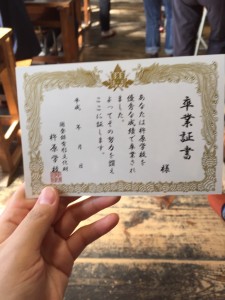 卒業証書
様
あなたは杵原学校を
優秀な成績で卒業され
ました。
よってその努力を讃え
ここに証します。
平成　年　月　日
杵原学校